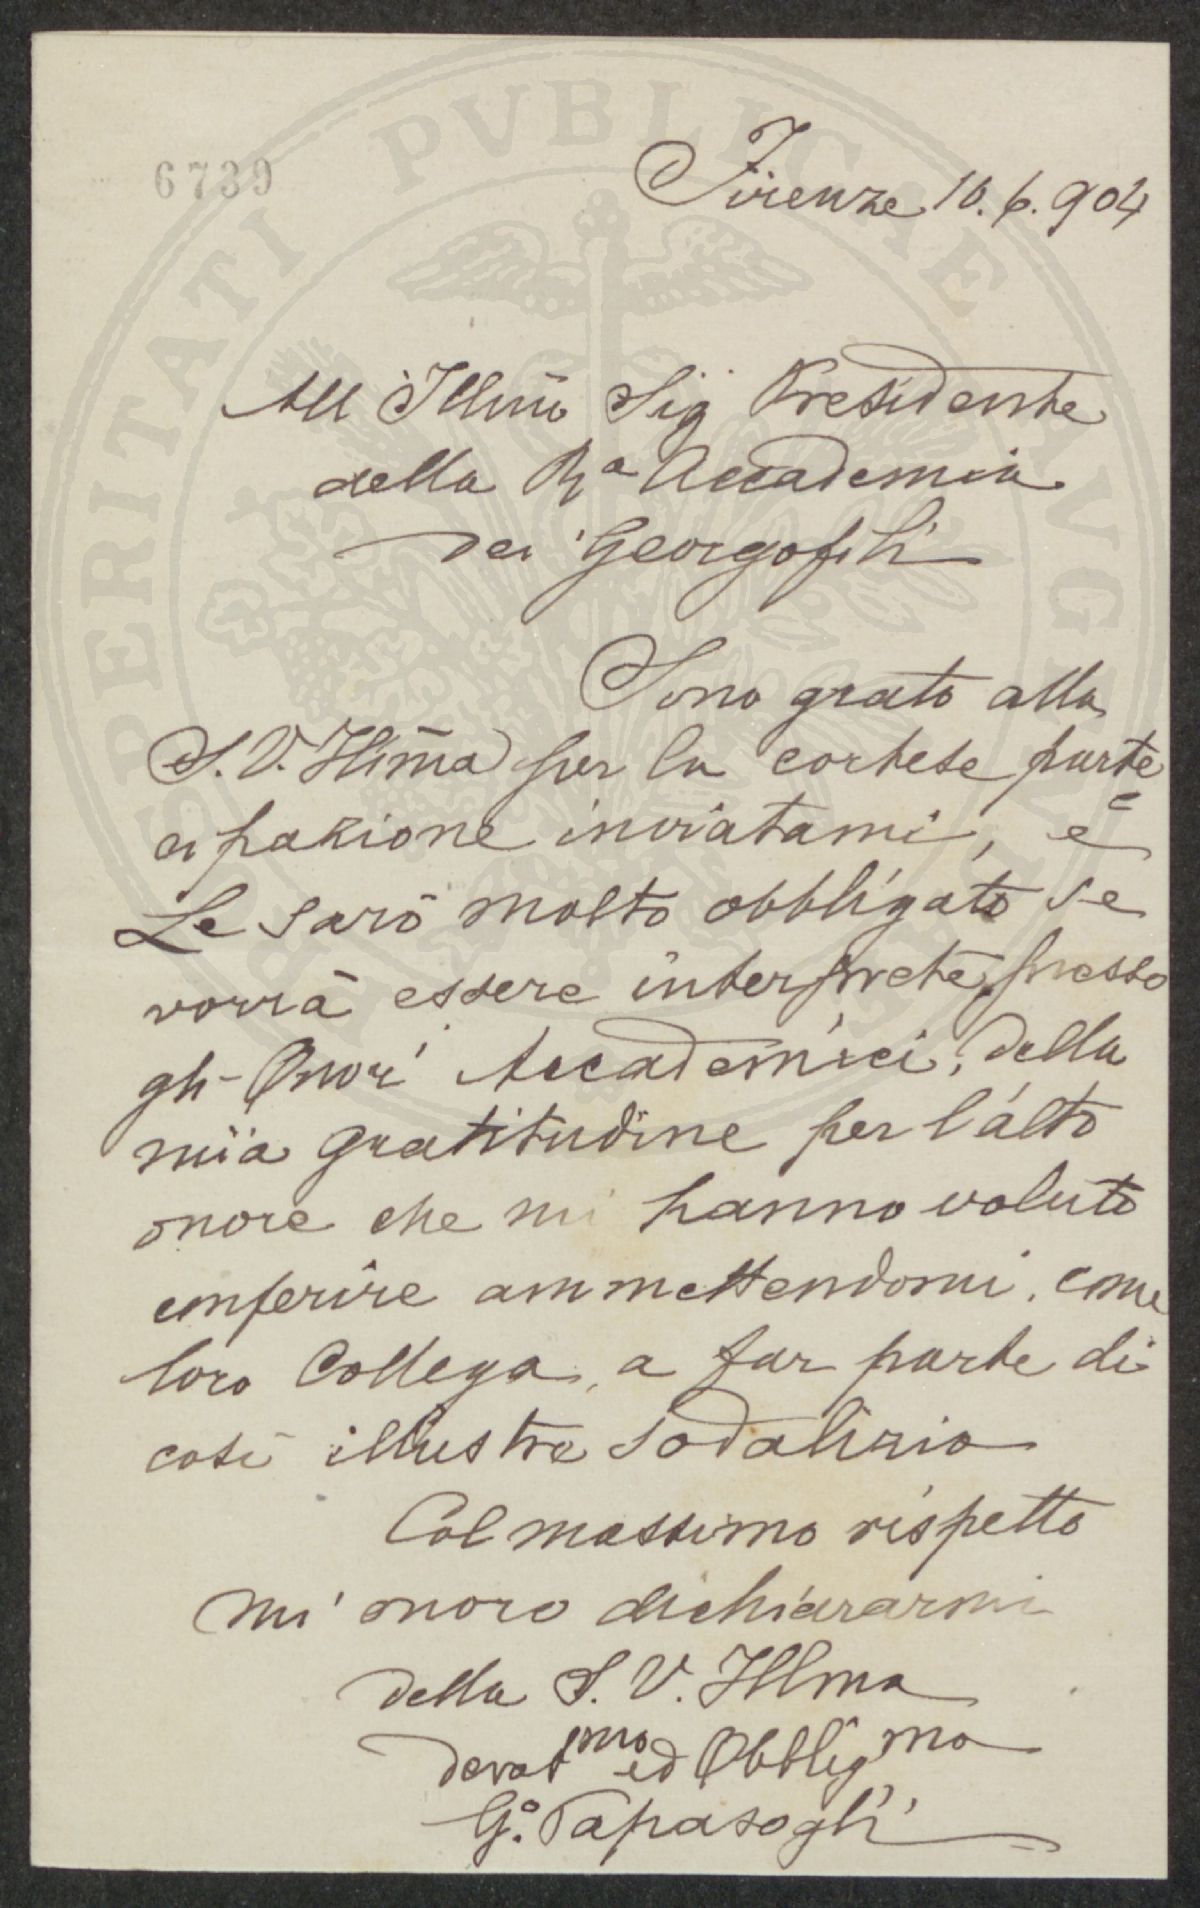 PROSPERITATI PVBLICAE AVGENDAE
6739
Firenze 10. 6. 904
All'Illmo Sig Presidente
della Ra Accademia
dei Georgofili
Sono grato alla
S. V. Illma per la cortese parte=
cipazione inviatami, e
Le sarò molto obbligato se
vorrà essere interprete, presso
gli Onori Accademici, della
mia gratitudine per l'alto
onore che mi hanno voluto
conferire ammettendomi, come
loro Collega, a far parte di
così illustre sodalizio
Col massimo rispetto
mi onoro dichiararmi
della S. V. Illma
devotmo ed Obbligmo
Go. Papasogli